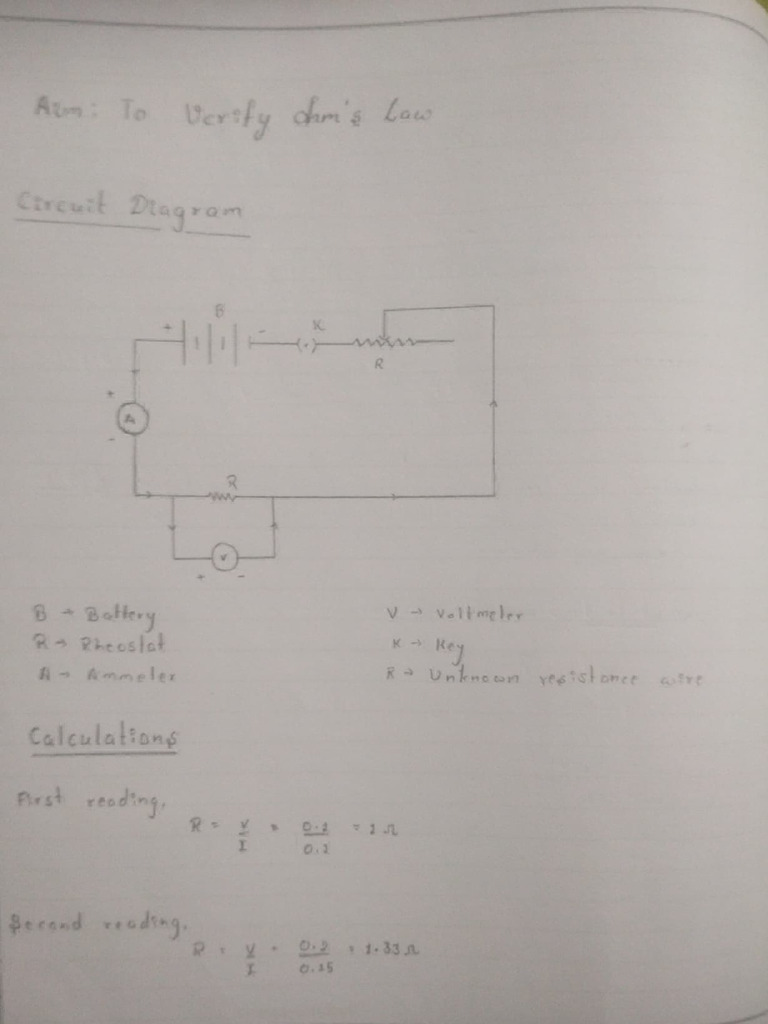 Aim: To Verify ohm's Law
Circuit Diagram
B
+ -
K
R
+
A
-
R
V
+ -
B → Battery
R → Rheostat
A → Ammeter
V → Voltmeter
K → Key
R → Unknown resistance wire
Calculations
First reading,
R = V/I = 0.1/0.1 = 1 Ω
Second reading,
R = V/I = 0.2/0.15 = 1.33 Ω